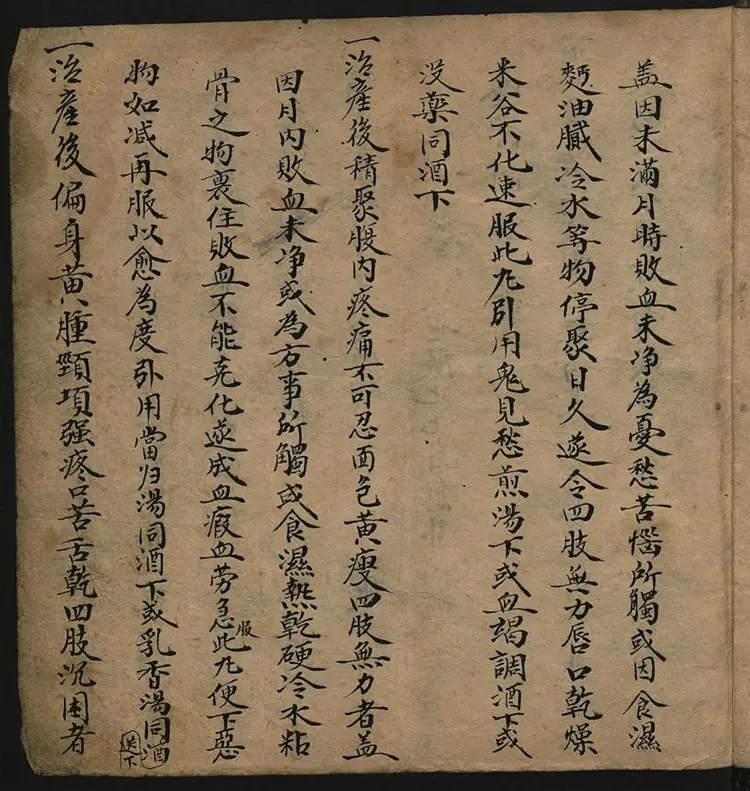 盖因未滿月時敗血未净為憂愁苦惱所觸或因食濕
麪油膩冷水等物停聚日久遂令四肢無力唇口乾燥
米谷不化速服此九引用鬼見愁煎湯下或血竭調酒下或
没藥同酒下
一治產後積聚股内疼痛不可忍面色黄瘦四肢無力者盖
因月内敗血未净或為方事所觸或食濕熱乾硬冷水粘
骨之物裹住敗血不能克化遂成血瘕血劳急服此九便下惡
物如减再服以愈為度引用當归湯同酒下或乳香湯同酒送下
一治產後偏身黄腫頸項强疼口苦舌乾四肢沉困者